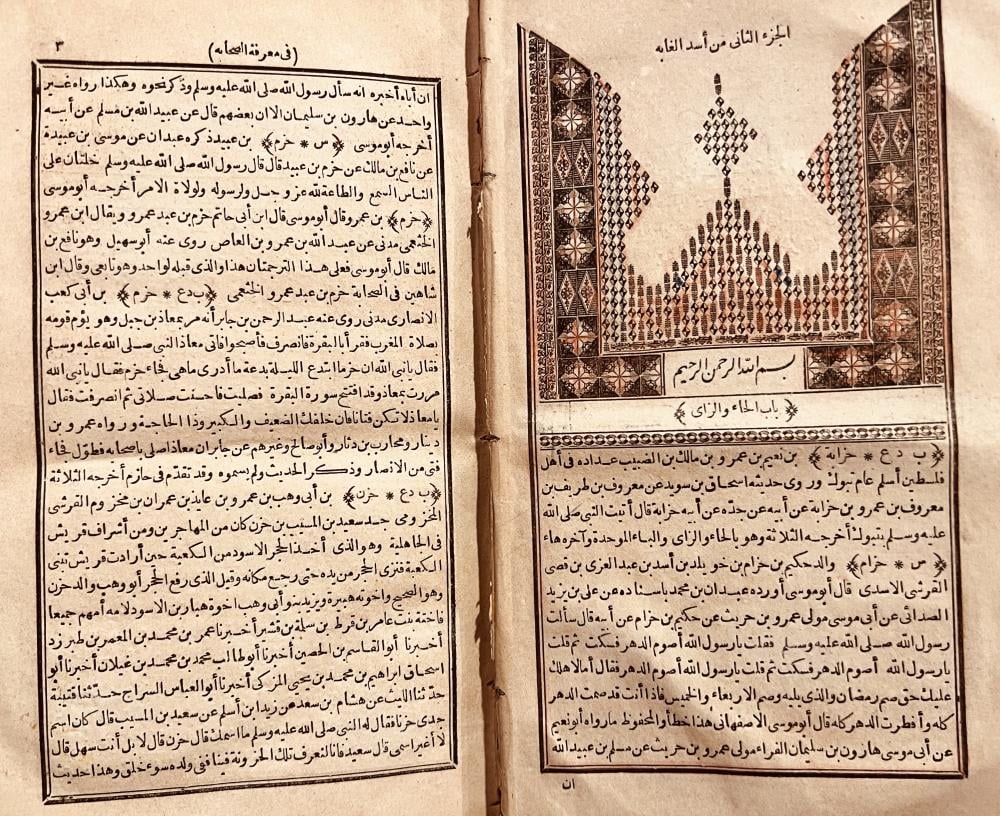 الجزء الثانى من أسد الغابه
بسم الله الرحمن الرحيم
﴿باب الحاء والزاى﴾
﴿ب دع * خزابة﴾ بن نعيم بن عمرو بن مالك بن الضبيب عداده فى أهل
فلسطين أسلم عام تبوك وروى حديثه اسحاق بن سويد عن معروف بن طريف بن
معروف بن عمرو بن خزابة عن أبيه عن جده عن أبيه خزابة قال أتيت النبى صلى الله
عليه وسلم بتبوك أخرجه الثلاثة وهو بالحاء والزاى والباء الموحدة وآخره هاء
﴿س * حزام﴾ والد حكيم بن حزام بن خويلد بن أسد بن عبد العزى بن قصى
القرشى الاسدى قال أبو موسى أورده عبدان بن محمد باسناده عن على بن يزيد
الصدائى عن أبى موسى مولى عمرو بن حريث عن حكيم بن حزام عن أبيه قال سألت
رسول الله صلى الله عليه وسلم فقلت يارسول الله أصوم الدهر فسكت ثم قلت
يارسول الله أصوم الدهر فسكت ثم قلت يارسول الله أصوم الدهر فقال أما لاهلك
عليك حق صم رمضان والذى يليه وصم الاربعاء والخميس فاذا أنت قد صمت الدهر
كله وأفطرت الدهر كله قال أبو موسى الاصفهانى هذا خطأ والمحفوظ مارواه أبو نعيم
عن أبى موسى هارون بن سليمان الفراء مولى عمرو بن حريث عن مسلم بن عبيد الله
ان
(فى معرفة الصحابه)
٣
ان أباه أخبره انه سأل رسول الله صلى الله عليه وسلم وذكر نحوه وهكذا رواه غير
واحد عن هارون بن سليمان الاان بعضهم قال عن عبيد الله بن مسلم عن أبيه
أخرجه أبو موسى ﴿س * حزم﴾ بن عبيد ذكره عبدان عن موسى بن عبيدة
عن نافع بن مالك عن حزم بن عبيد قال قال رسول الله صلى الله عليه وسلم خلتان على
الناس السمع والطاعة لله عز وجل ولرسوله ولولاة الامر أخرجه أبو موسى
﴿حزم﴾ بن عمرو قال أبو موسى قال ابن أبى حاتم حزم بن عبد عمرو ويقال ابن عمرو
الخثعمى مدنى عن عبد الله بن عمرو بن العاص روى عنه أبو سهيل وهو نافع بن
مالك قال أبو موسى فعلى هذا الترجمتان هذا والذى قبله لواحد وهو تابعى وقال ابن
شاهين فى الصحابة حزم بن عبد عمرو الخثعمى ﴿ب دع * حزم﴾ بن أبى كعب
الانصارى مدنى روى عنه عبد الرحمن بن جابر أنه مر بمعاذ بن جبل وهو يؤم قومه
بصلاة المغرب فقرأ بالبقرة فانصرف فأصبحوا فاتى معاذ النبى صلى الله عليه وسلم
فقال يانبى الله ان حزما ابتدع الليلة بدعة ما أدرى ماهى فجاء حزم فقال يانبى الله
مررت بمعاذ وقد افتتح سورة البقرة فصليت فأحسنت صلاتى ثم انصرفت فقال
يامعاذ لا تكن فتانا فان خلفك الضعيف والكبير وذا الحاجة ورواه عمرو بن
دينار ومحارب بن دثار وأبو صالح وغيرهم عن جابر ان معاذا صلى باصحابه فطول فجاء
فتى من الانصار وذكر الحديث ولم يسموه وقد تقدم فى حازم أخرجه الثلاثة
﴿ب دع * حزن﴾ بن أبى وهب بن عمرو بن عايذ بن عمران بن مخزوم القرشى
المخزومى جد سعيد بن المسيب بن حزن كان من المهاجرين ومن أشراف قريش
فى الجاهلية وهو الذى أخذ الحجر الاسود من الكعبة حين أرادت قريش تبنى
الكعبة فنزى الحجر من يده حتى رجع مكانه وقيل الذى رفع الحجر أبو وهب والد حزن
وهو الصحيح واخوته هبيرة ويزيد بنو أبى وهب اخوة هبار بن الاسود لامه أمهم جميعا
فاختة بنت عامر بن قرط بن سلمة بن قشير أخبرنا عمر بن محمد بن المعمر بن طبرزد
أخبرنا أبو القاسم بن الحصين أخبرنا أبو طالب محمد بن محمد بن غيلان أخبرنا أبو
اسحاق ابراهيم بن محمد بن يحيى المزكى أخبرنا أبو العباس السراج حدثنا قتيبة
حدثنا الليث عن هشام بن سعد عن زيد بن أسلم عن سعيد بن المسيب قال كان اسم
جدى حزنا فقال له النبى صلى الله عليه وسلم ما اسمك قال حزن قال لا بل أنت سهل قال
لا أغير اسمى قال سعيد فانا لنعرف تلك الحزونة فينا ففى ولده سوء خلق وهذا حديث